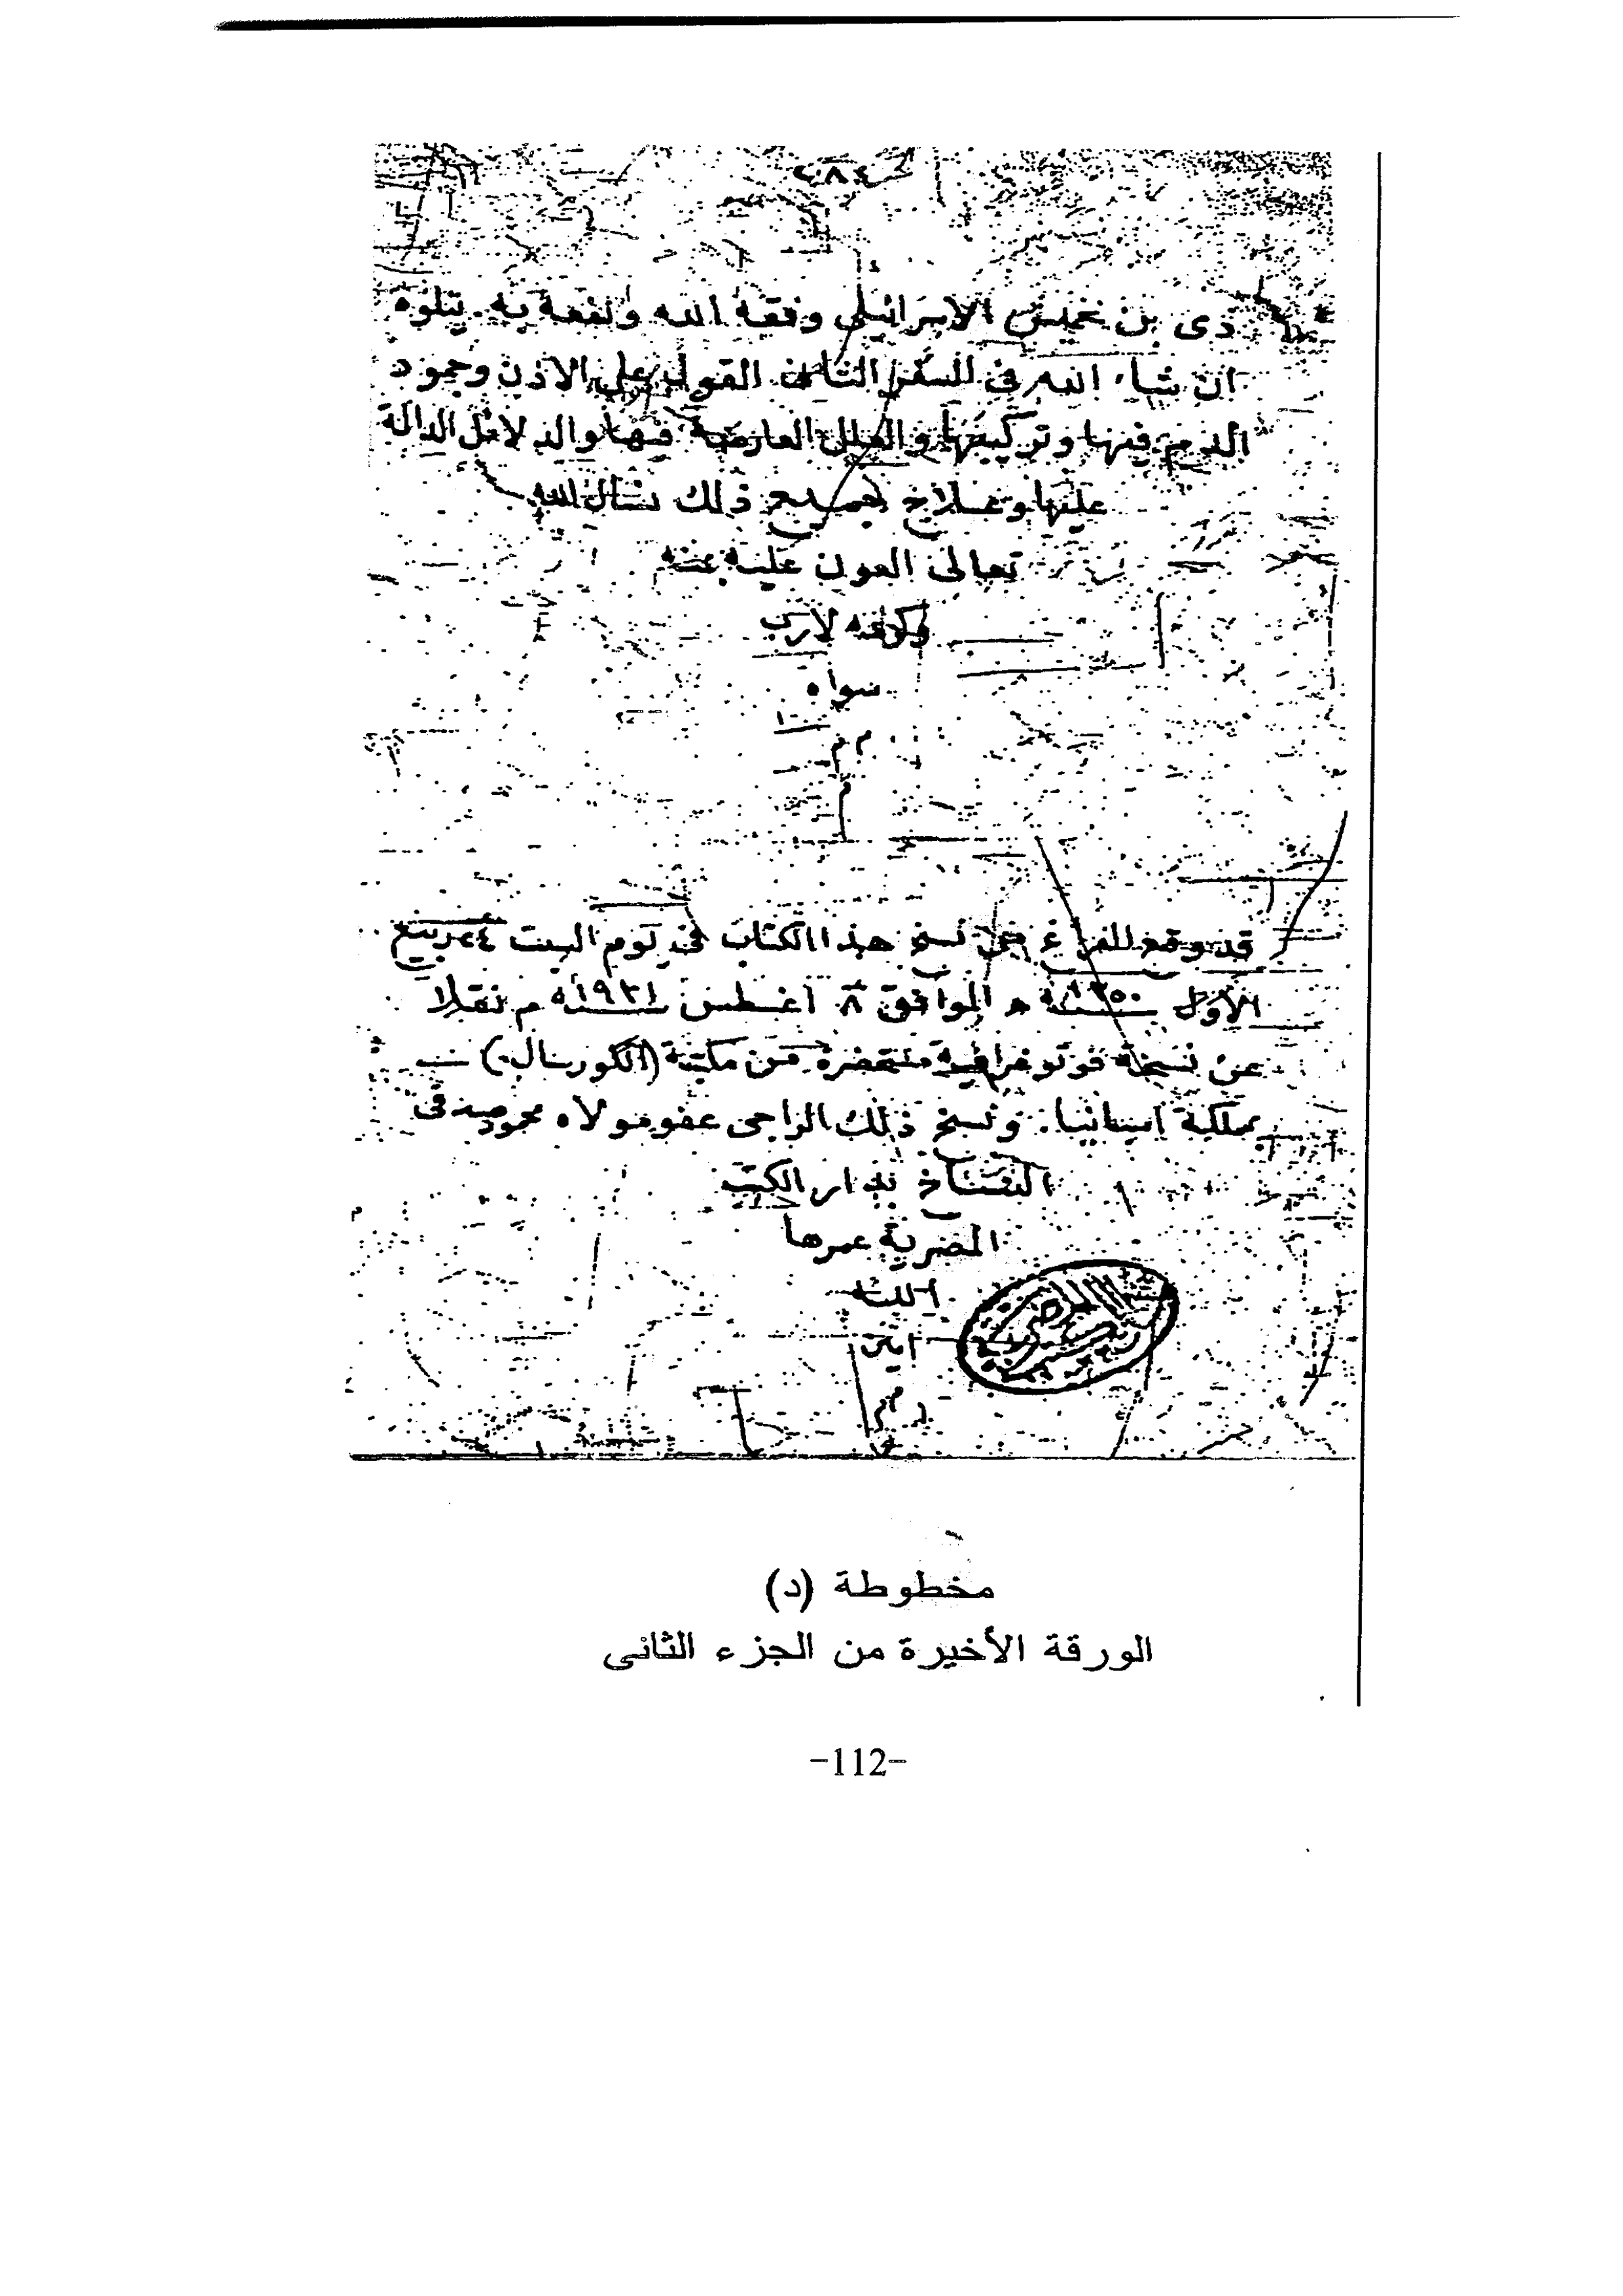 ذى بن خميس الإسرائيلى وفقه الله ونفعه به. يتلوه
ان شاء الله فى السفر الثانى القول على الاذن وجمود
الدم فيها وتركيبها والعلل العارضة فيها والدلائل الدالة
عليها وعلاج جميع ذلك نسأل الله
تعالى العون عليه بمنه
وكرمه لا رب
سواه
م م
م
قد وقع الفراغ من نسخ هذا الكتاب فى يوم السبت ٢٤ ربيع
الأول سنة ١٣٥٠ ه الموافق ٨ أغسطس سنة ١٩٣١ م نقلا
عن نسخة فوتوغرافية متحضرة من مكتبة (الكوريال)
بمملكة اسبانيا. ونسخ ذلك الراجى عفو مولاه محمود صدقى
النساخ بدار الكتب
المصرية عمرها
الله
امين
م
مخطوطة (د)
الورقة الأخيرة من الجزء الثانى
-112-